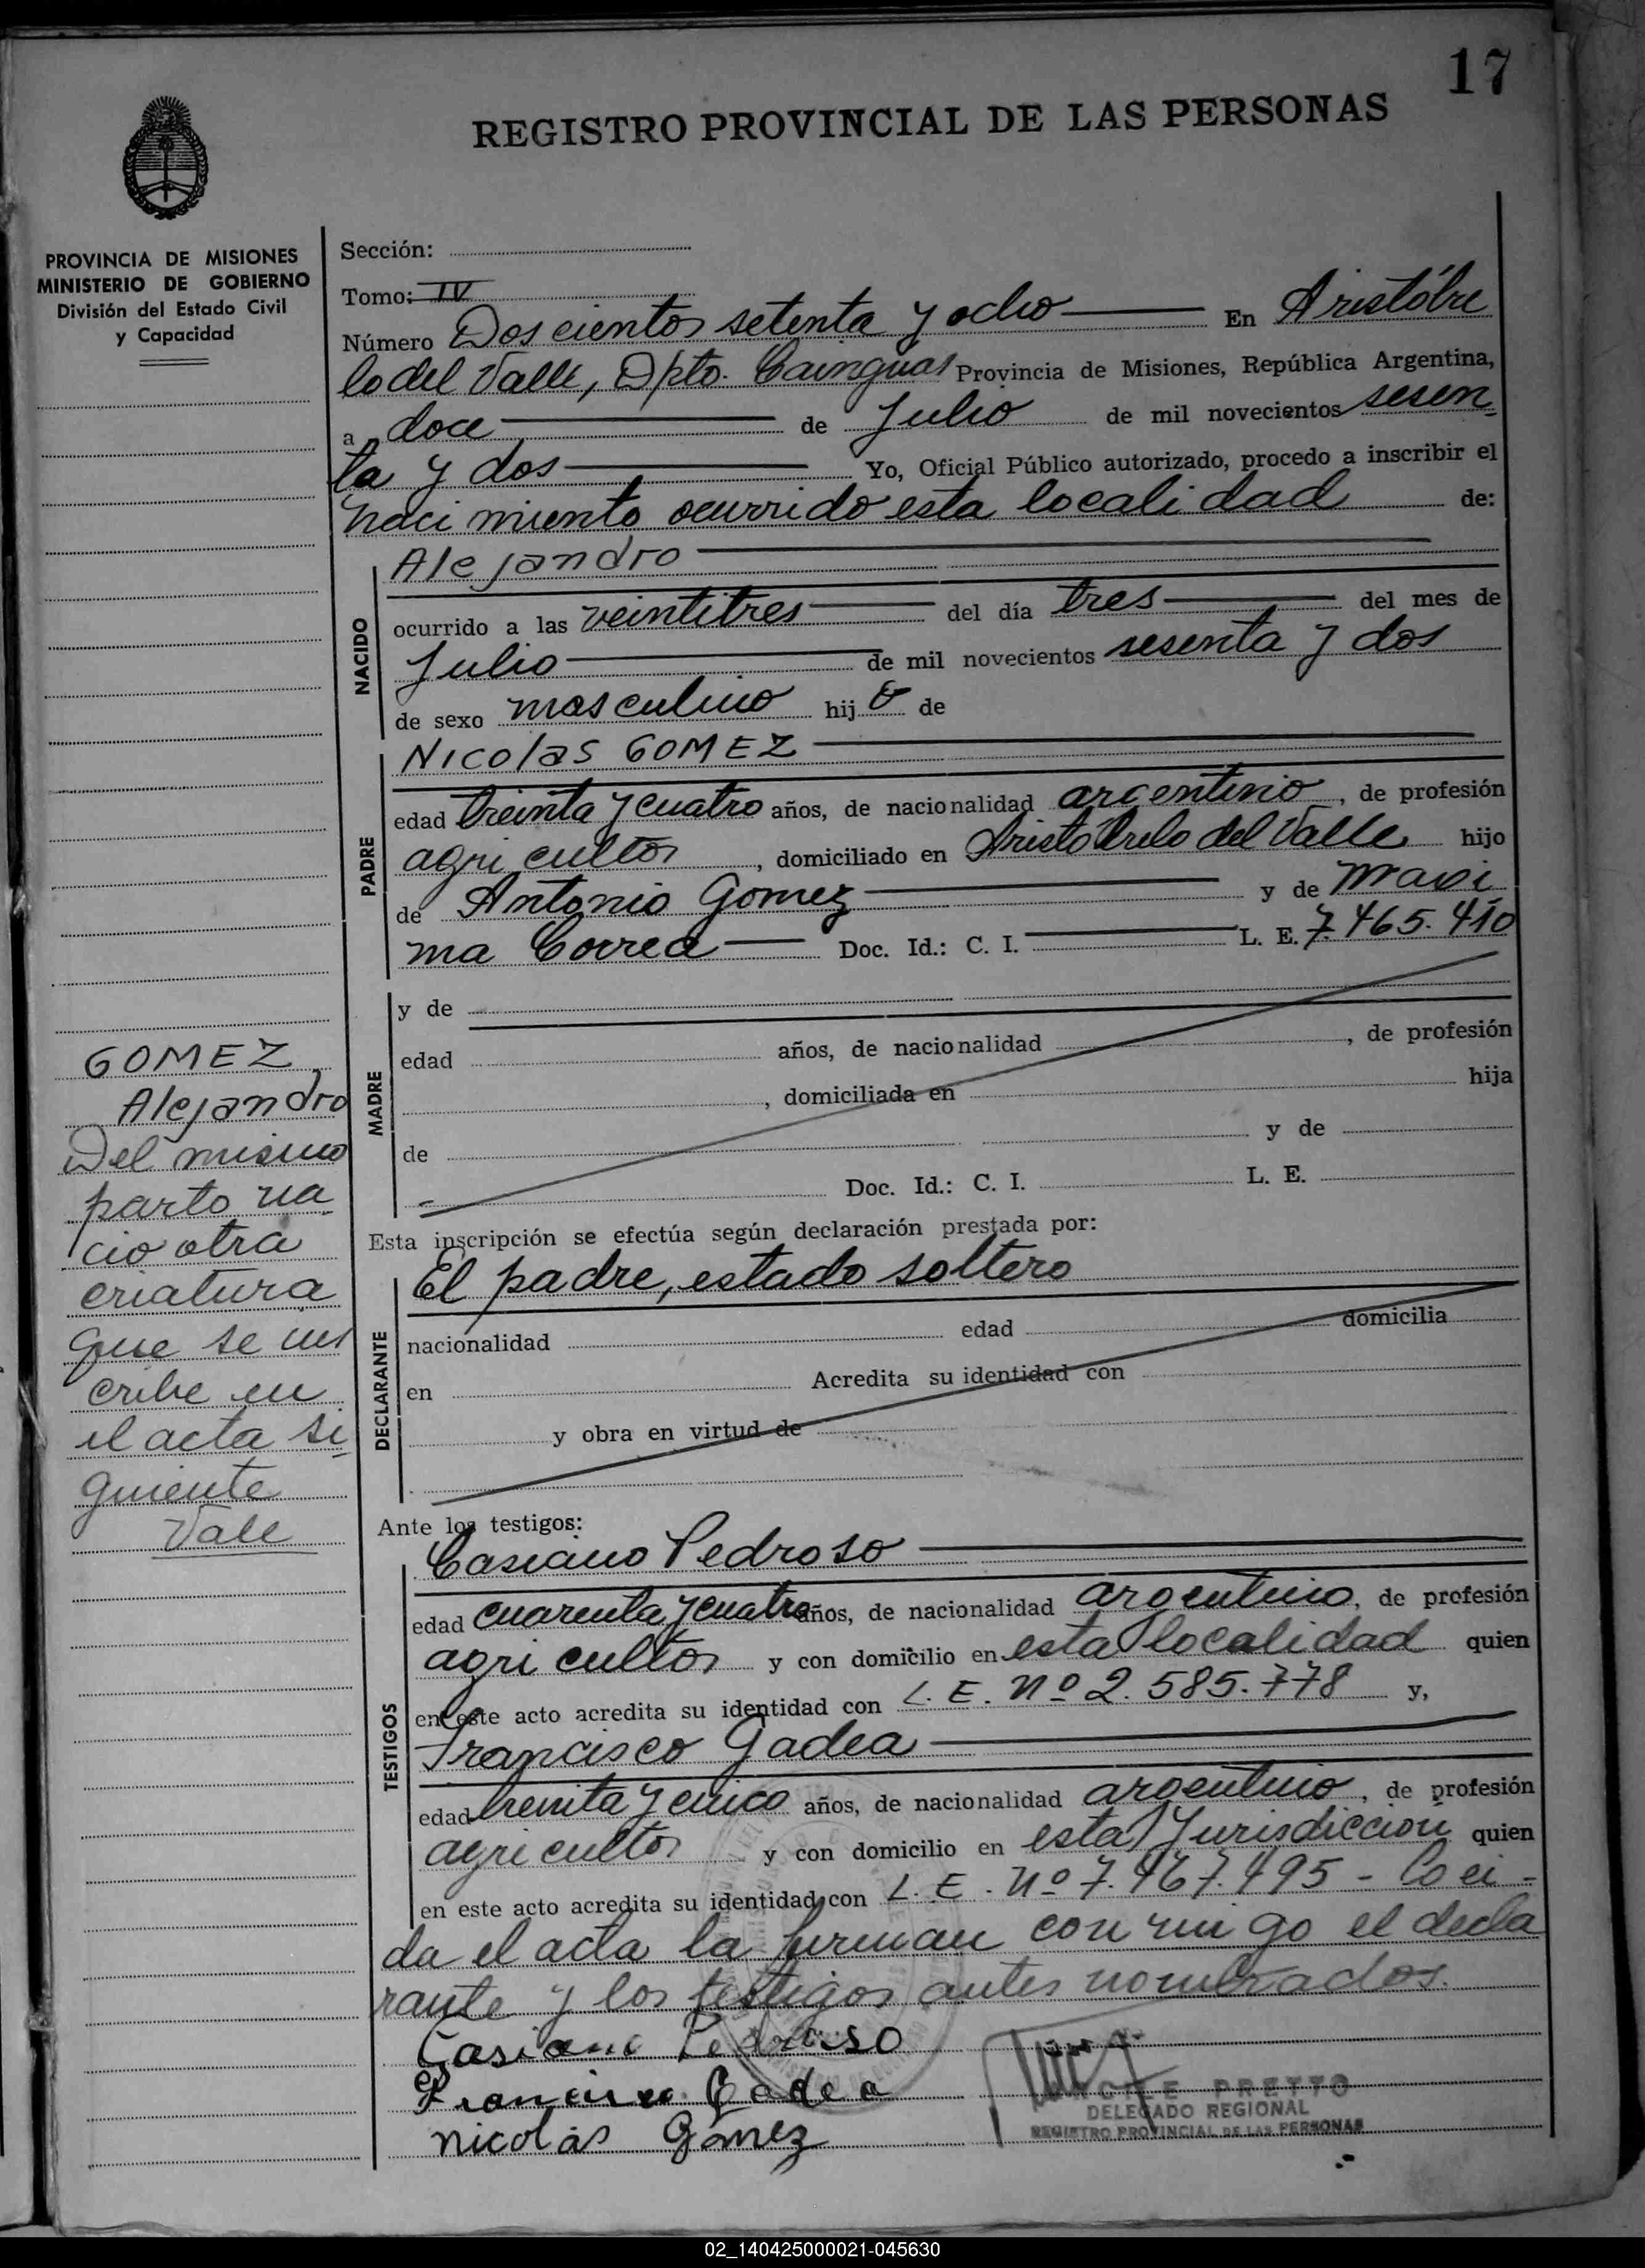 17
REGISTRO PROVINCIAL DE LAS PERSONAS
PROVINCIA DE MISIONES
MINISTERIO DE GOBIERNO
División del Estado Civil
y Capacidad
Sección:
Tomo: IV
Número Doscientos setenta y ocho En Aristóbu
lo del Valle, Dpto. Cainguas Provincia de Misiones, República Argentina,
a doce de Julio de mil novecientos sesen
ta y dos Yo, Oficial Público autorizado, procedo a inscribir el
nacimiento ocurrido esta localidad de:
NACIDO
Alejandro
ocurrido a las veintitres del día tres del mes de
Julio de mil novecientos sesenta y dos
de sexo masculino hijo de
PADRE
Nicolas GOMEZ
edad treinta y cuatro años, de nacionalidad argentino, de profesión
agricultor, domiciliado en Aristóbulo del Valle hijo
de Antonio Gomez y de Maxi
ma Correa Doc. Id.: C. I. L. E. 7.465.410
MADRE
y de
edad años, de nacionalidad , de profesión
, domiciliada en hija
de y de
Doc. Id.: C. I. L. E.
GOMEZ,
Alejandro
Del mismo
parto na
ció otra
criatura
que se ins
cribe en
el acta si
guiente
Vale
Esta inscripción se efectúa según declaración prestada por:
DECLARANTE
El padre, estado soltero
nacionalidad edad domicilia
en Acredita su identidad con
y obra en virtud de
Ante los testigos:
TESTIGOS
Casiano Pedroso
edad cuarenta y cuatro años, de nacionalidad argentino, de profesión
agricultor y con domicilio en esta localidad quien
en este acto acredita su identidad con L. E. Nº 2.585.778 y,
Francisco Gadea
edad treinta y cinco años, de nacionalidad argentino, de profesión
agricultor y con domicilio en esta Jurisdicción quien
en este acto acredita su identidad con L. E. Nº 7.467.495 -
da el acta la firman conmigo el decla
rante y los testigos antes nombrados.
Casiano Pedroso
Francisco Gadea
Nicolás Gómez
PRETTO
DELEGADO REGIONAL
REGISTRO PROVINCIAL DE LAS PERSONAS
02_140425000021-045630